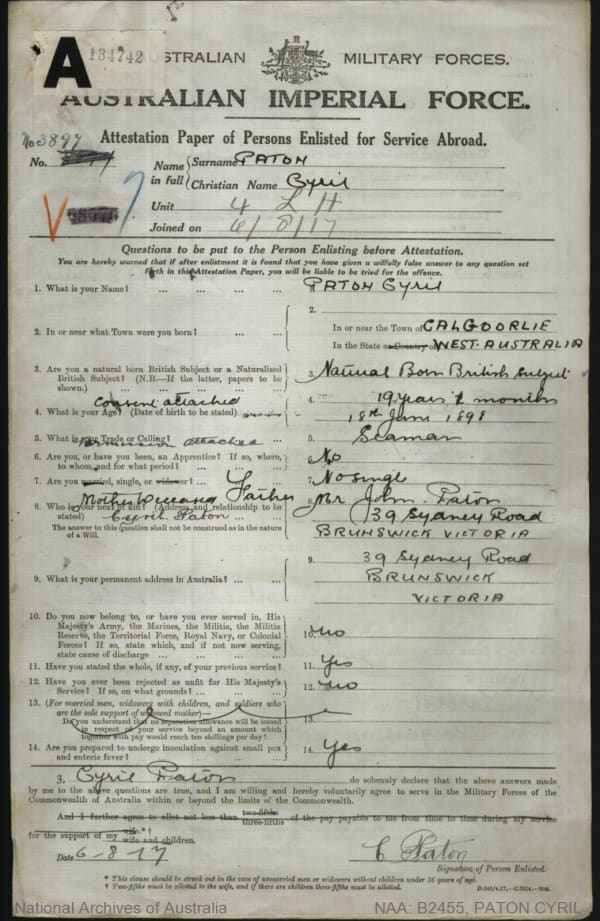 A
134742
AUSTRALIAN MILITARY FORCES.
AUSTRALIAN IMPERIAL FORCE.
Attestation Paper of Persons Enlisted for Service Abroad.
No 3897
No.
Name in full { Surname PATON
Christian Name Cyril
Unit 4 L H
Joined on 6/8/17
Questions to be put to the Person Enlisting before Attestation.
You are hereby warned that if after enlistment it is found that you have given a wilfully false answer to any question set
forth in this Attestation Paper, you will be liable to be tried for the offence.
1. What is your Name? ... ... ... ... PATON Cyril
2. In or near what Town were you born? ... ... 2. In or near the Town of CALGOORLIE
In the State or Country of WEST. AUSTRALIA
3. Are you a natural born British Subject or a Naturalized
British Subject? (N.B.—If the latter, papers to be
shown.) ... ... ... ... 3. Natural Born British Subject
Consent attached
4. What is your Age? (Date of birth to be stated) 4. 19 years months
18th 1898
5. What is your Trade or Calling? ... ... 5. Seaman
attached
6. Are you, or have you been, an Apprentice? If so, where,
to whom, and for what period? ... ... 6. No
7. Are you married, single, or widower? ... ... 7. No single
Mother Deceased Father
8. Who is your next of kin? (Address and relationship to be
stated) Cyril Paton
The answer to this question shall not be construed as in the nature
of a Will.
8. Mr John Paton
39 Sydney Road
BRUNSWICK VICTORIA
9. What is your permanent address in Australia? ... ... 9. 39 Sydney Road
BRUNSWICK
VICTORIA
10. Do you now belong to, or have you ever served in, His
Majesty's Army, the Marines, the Militia, the Militia
Reserve, the Territorial Force, Royal Navy, or Colonial
Forces? If so, state which, and if not now serving,
state cause of discharge ... ... ... 10. no
11. Have you stated the whole, if any, of your previous service? 11. Yes
12. Have you ever been rejected as unfit for His Majesty's
Service? If so, on what grounds? ... ... 12. no
13. (For married men, widowers with children, and soldiers who
are the sole support of widowed mother)—
Do you understand that no separation allowance will be issued
in respect of your service beyond an amount which
together with pay would reach ten shillings per day? 13.
14. Are you prepared to undergo inoculation against small pox
and enteric fever? ... ... ... 14. Yes
I, Cyril Paton do solemnly declare that the above answers made
by me to the above questions are true, and I am willing and hereby voluntarily agree to serve in the Military Forces of the
Commonwealth of Australia within or beyond the limits of the Commonwealth.
And I further agree to allot not less than two-fifths three-fifths of the pay payable to me from time to time during my service
for the support of my wife.*† wife and children.
Date 6-8-17 C Paton
Signature of Person Enlisted.
* This clause should be struck out in the case of unmarried men or widowers without children under 16 years of age.
† Two-fifths must be allotted to the wife, and if there are children three-fifths must be allotted.
National Archives of Australia NAA: B2455, PATON CYRIL